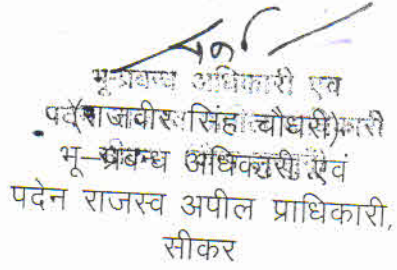 भू-प्रबन्ध अधिकारी एवं
(राजावीर सिंह चौधरी)
भू-प्रबन्ध अधिकारी एवं
पदेन राजस्व अपील प्राधिकारी,
सीकर